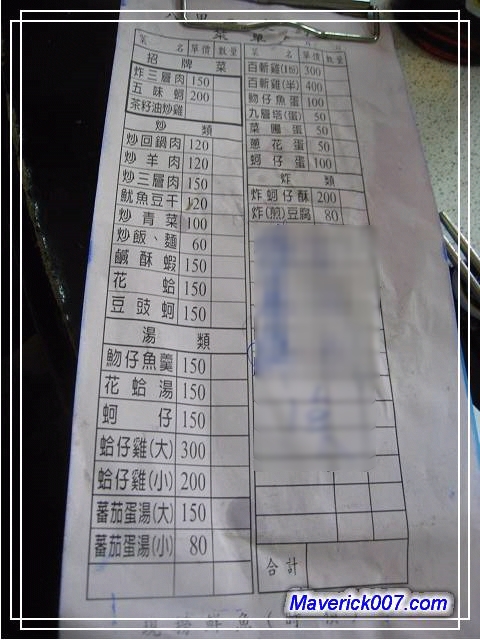 菜單
菜名 單價 數量
招牌菜
炸三層肉 150
五味蚵 200
茶籽油炒雞
炒類
炒回鍋肉 120
炒羊肉 120
炒三層肉 150
魷魚豆干 120
炒青菜 100
炒飯、麵 60
鹹酥蝦 150
花蛤 150
豆豉蚵 150
湯類
魩仔魚羹 150
花蛤湯 150
蚵仔 150
蛤仔雞(大) 300
蛤仔雞(小) 200
蕃茄蛋湯(大) 150
蕃茄蛋湯(小) 80
菜名 單價 數量
百斬雞 300
百斬雞(半) 400
魩仔魚蛋 100
九層塔(蛋) 50
菜脯蛋 50
蔥花蛋 50
蚵仔蛋 100
炸類
炸蚵仔酥 200
炸(煎)豆腐 80
合計
Maverick007.com